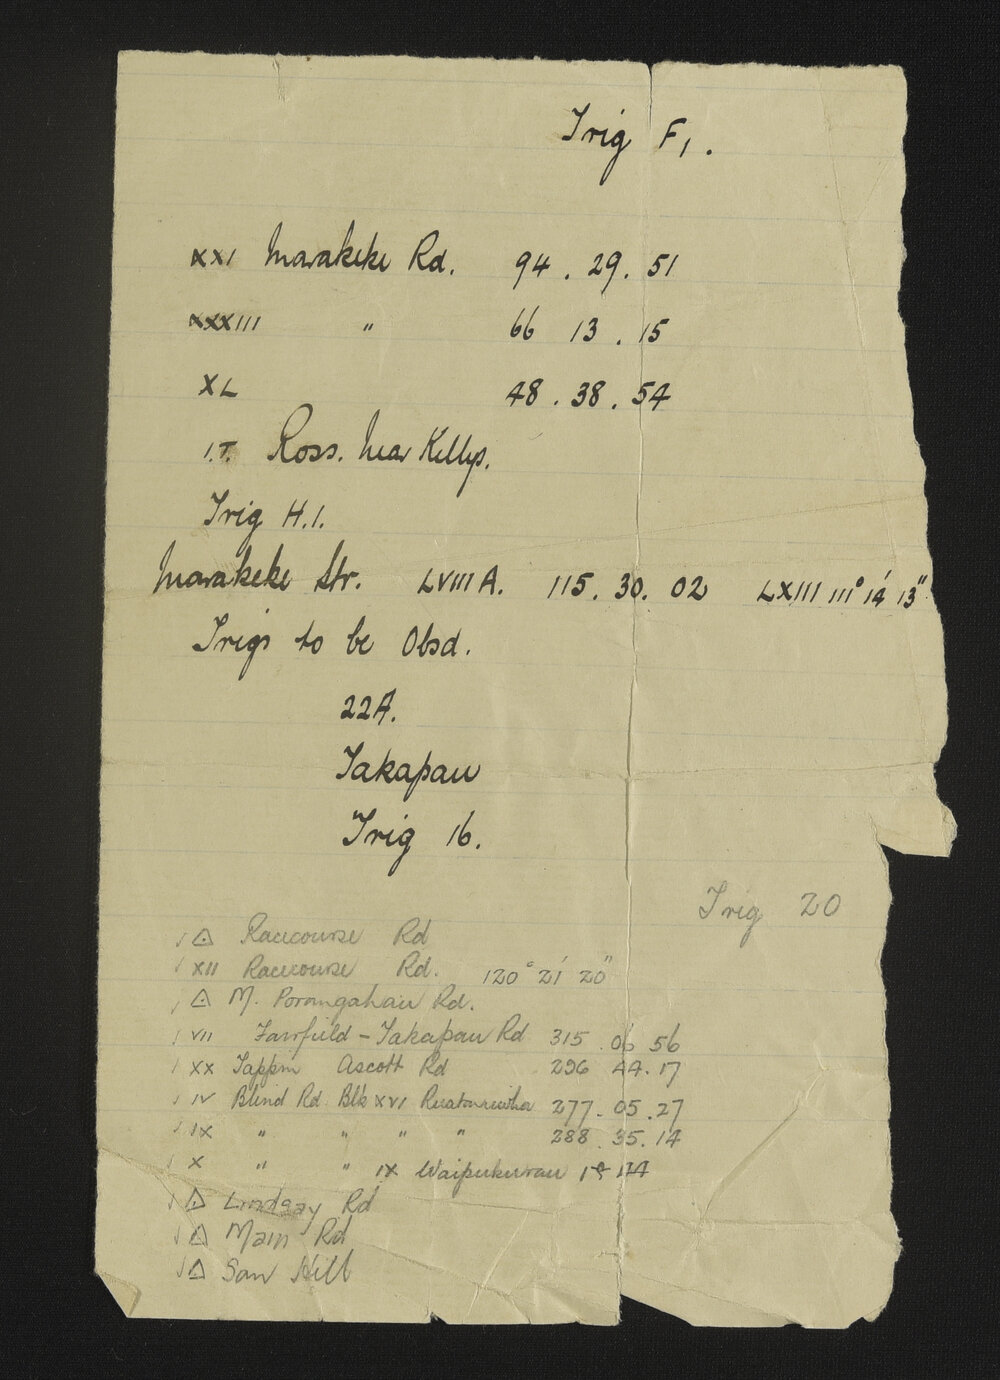 Trig F1.
XXI Marakeke Rd. 94 . 29 . 51
XXXIII " 66 13 . 15
XL 48 . 38 . 54
I.T. Ross. Near Kellys.
Trig H.1.
Marakeke Str. LVIII A. 115 . 30 . 02 LXIII 111° 14' 13"
Trigs to be Obsd.
22A.
Takapau
Trig 16.
Trig 20
/ △ Racecourse Rd
/ XII Racecourse Rd. 120° 21' 20"
/ △ M. Porangahau Rd.
/ VII Fairfield - Takapau Rd 315 . 06 56
/ XX Tappin Ascott Rd 296 44 . 17
/ IV Blind Rd Blk XVI Ruataniwha 277 . 05 . 27
/ IX " " " " 288 . 35 . 14
/ X " " IX Waipukurau
/ △ Lindsay Rd
/ △ Main Rd
/ △ Hill